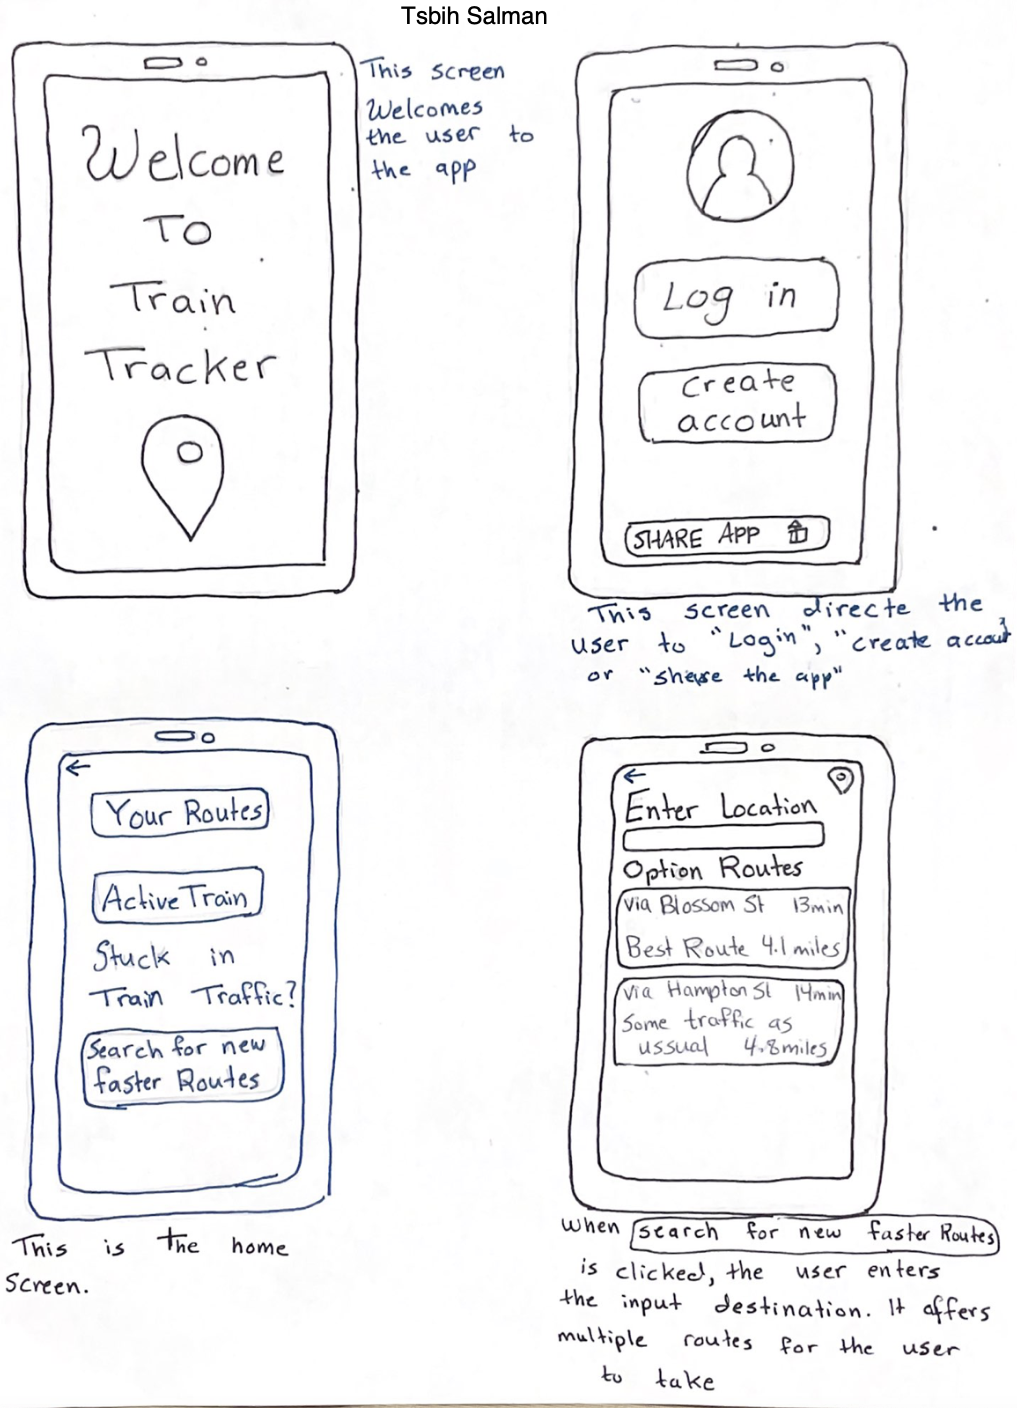 Tsbih Salman
Welcome
To
Train
Tracker
This screen
Welcomes
the user to
the app
Log in
Create
account
SHARE APP
This screen directe the
user to "Login", "create account"
or "share the app"
←
Your Routes
Active Train
Stuck in
Train Traffic?
Search for new
faster Routes
This is the home
Screen.
←
Enter Location
Option Routes
Via Blossom St 13min
Best Route 4.1 miles
Via Hampton St 14min
Some traffic as
ussual 4.8miles
When search for new faster Routes
is clicked, the user enters
the input destination. It offers
multiple routes for the user
to take